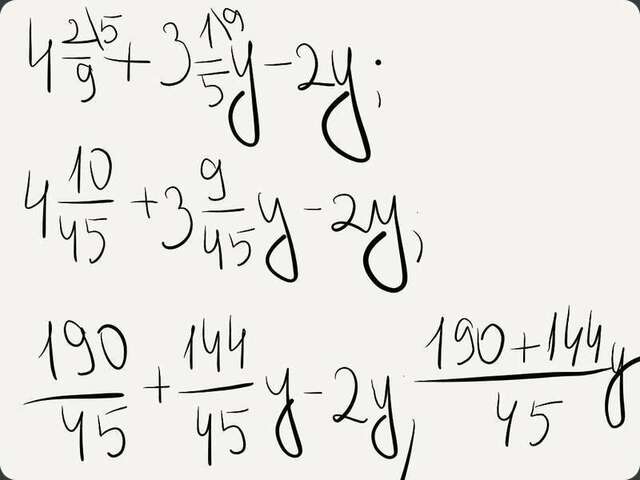 4 2\5/9 + 3 1\9/5 y - 2y;
4 10/45 + 3 9/45 y - 2y;
190/45 + 144/45 y - 2y, (190+144y)/45